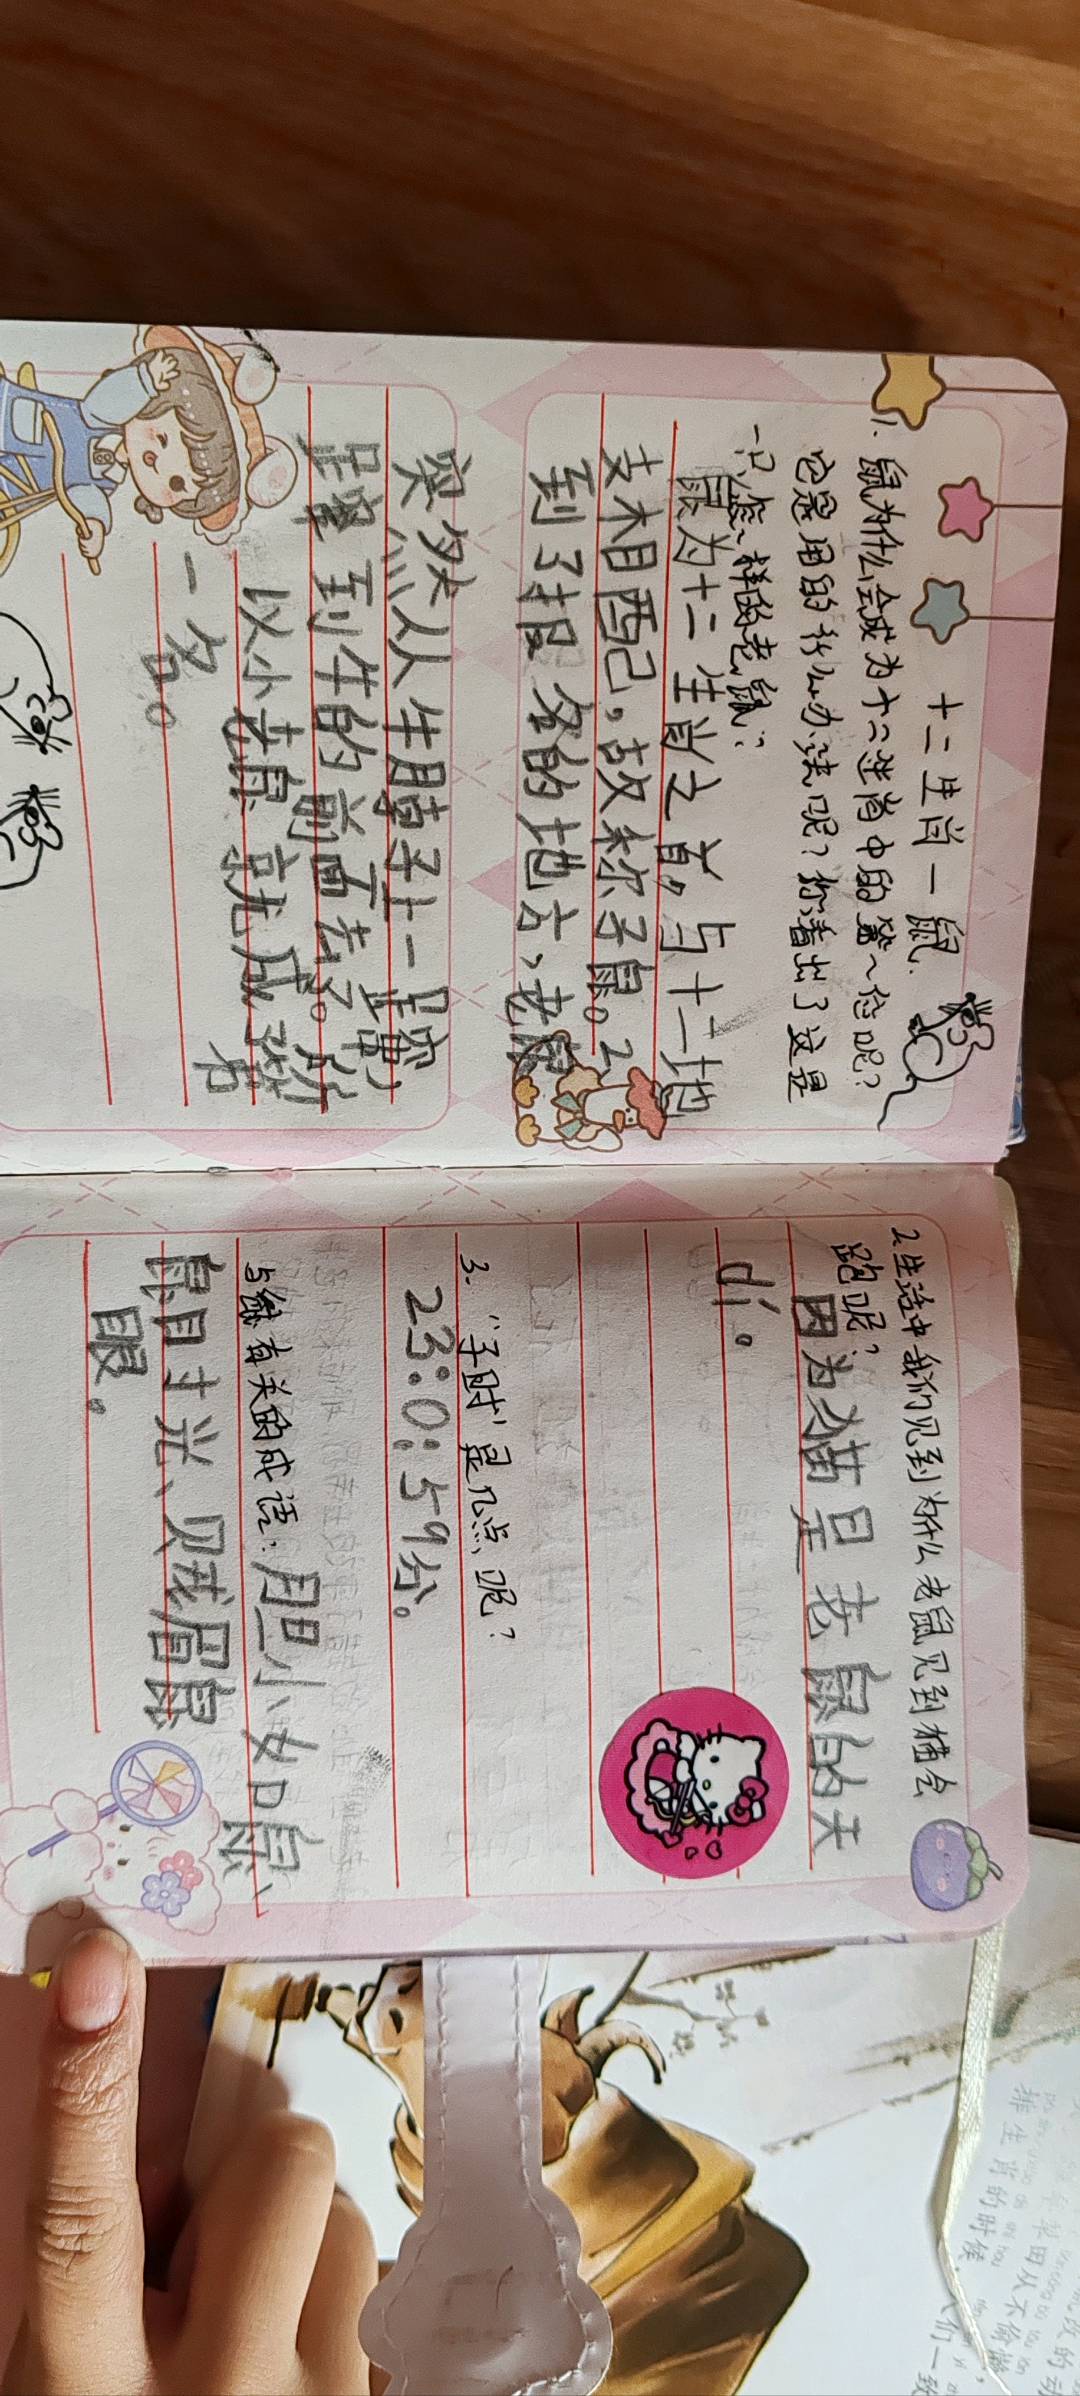 十二生肖一鼠.
1. 鼠为什么会成为十二生肖中的第一位呢?
它是用的什么办法呢?你看出了这是
一只怎样的老鼠?
鼠为十二生肖之首。与十二地
支相配,故称子鼠。2
到了报名的地方,老鼠
突然从牛脖子上一呈蹿,
呈蹿到牛的前面去了。所
以小老鼠就成第
一名。
2.生活中我们见到为什么老鼠见到猫会
跑呢?
因为猫是老鼠的天
dí。
3.“子时”是几点呢?
23:0:59分。
与鼠有关的成语:胆小如鼠、
鼠目寸光、贝戎眉鼠
眼。
排生肖的时候,
人们一致